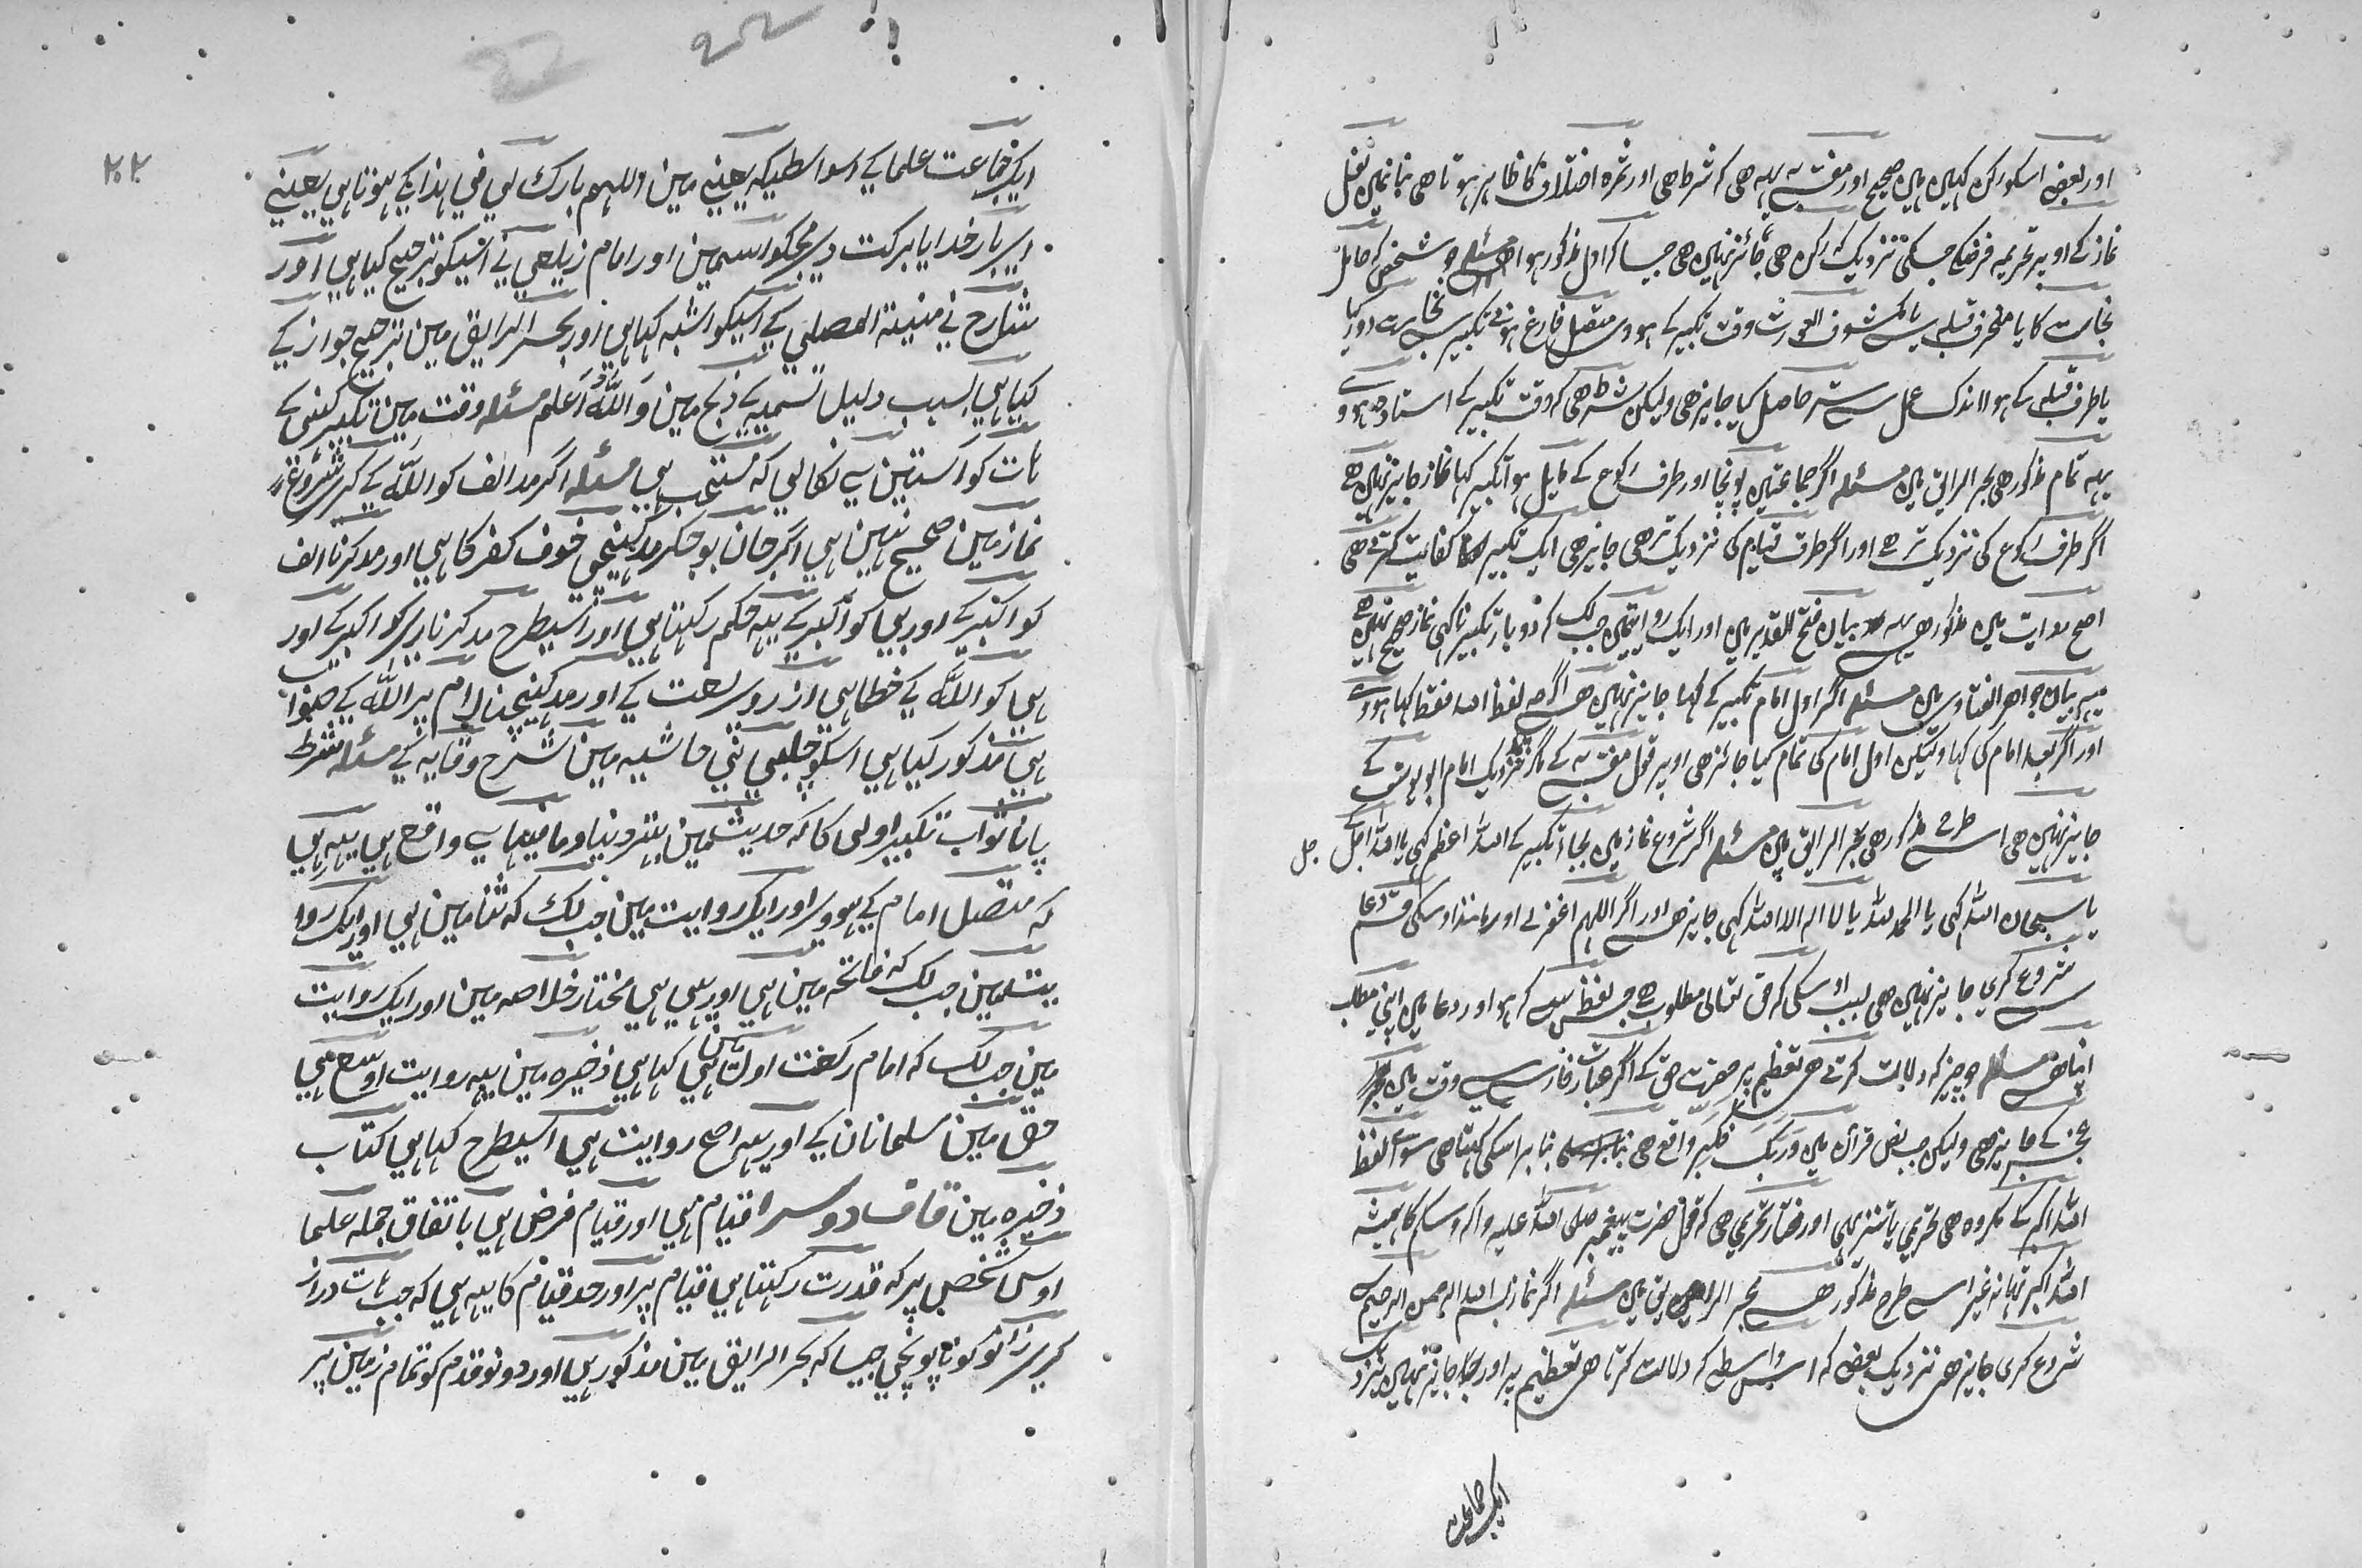 اور بعضے اسکو رکن کہی ہیں صحیح اور مفتی بہ یہہ ھی کہ شرط ھی اور ثمرہ اختلاف کا ظاہر ہوتا ھی بنا نہیں نفل
نماز کے اوپر تحریمہ فرضکے جسکی نزدیک رکن ھی جائز نہیں ھی جیسا کہ اول مذکور ہوا مسئلہ جو شخص کہ حامل
نجاست کا یا منحرف قبلہ سے یا مکشوف العورت وقت تکبیر کے ہووی متصل فارغ ہونے تکبیر سے نجاست دور کیا
یا طرف قبلہ کے ہوا اندک عمل سے ستر حاصل کیا جایز ھی ولیکن شرط ھی کہ وقت تکبیر کے استادہ ہووے
یہہ تمام مذکور ھی بحر الرایق میں مسئلہ اگر جماعتمیں پونچا اور طرف رکوع کے مایل ہو تکبیر کہا نماز جایز نہیں ھے
اگر طرف رکوع کی نزدیک تر ھے اور اگر طرف قیام کی نزدیک تر ھی جایز ھی ایک تکبیر کفایت کرتے ھی
اصح روایت میں مذکور ھی یہہ بیان فتح القدیر میں اور ایک روایتمیں جب لک کہ دوبار تکبیر نا کہی نماز صحیح نہیں ھے
یہہ بیان جواھر الفتاوی میں مسئلہ اگر اول امام تکبیر کے کہا جایز نہیں ھی اگرچہ لفظ اللہ فقط کہا ہووے
اور اگر بعد امام کی کہا ولیکن اول امام کی تمام کیا جائز ھی اوپر قول مفتی بہ کے مگر نزدیک امام ابو یوسف کے
جایز نہیں ھی اس طرح مذکور ھی بحر الرایق میں مسئلہ اگر شروع نماز میں بجاے تکبیر کے اللہ اعظم کہی یا اللہ اجل
جل
یا سبحان اللہ کہی یا الحمد للہ یا لا الہ الا اللہ کہی جایز ھی اور اگر اللہم اغفر لے اور مانند اوسکی قسم دعا
سے شروع کری جایز نہیں ھی بسبب اوسکی کہ حق تعالی مطلوب ھے جس لفظ سے کہ ہو اور دعا میں اپنی مطلب
اپنا ھی مسئلہ جو چیز کہ دلالت کرتے ھی تعظیم پر حضرت حق کے اگر عبارت فارسی سے وقت میں
عجز کے جایز ھی ولیکن جب نص قرآن میں وَرَبَّکَ فَکَبِّر واقع ھی بنا بر اسکی کہتا ھی سواے لفظ
اللہ اکبر کے مکروہ ھی تحریمی یا تنزیہی اور مختار تحریمی ھی کہ قول حضرت پیغمبر صلی اللہ علیہ وآلہ وسلم کا ہمیشہ
اللہ اکبر تہا نہ غیر اس طرح مذکور ھی بحر الرایق میں مسئلہ اگر نماز بسم اللہ الرحمن الرحیم سے
شروع کری جایز ھی نزدیک بعضے کہ اس واسطے کہ دلالت کرتا ھی تعظیم پر اور جایز نہیں نزدیک
ایک جماعت
۲۲
ایک جماعت علما کے اسواسطیکہ یعنے مین اللہم بارک لی فی ہذا کے ہوتا ہی یعنے
ای بار خدایا برکت دی مجکو اسمین اور امام زیلعی نے اسیکو ترجیح کیا ہی اور
شارح نی منیۃ المصلی کے اسیکو اشبہ کہا ہی اور بحر الرایق مین ترجیح جواز کے
کیا ہی بسبب دلیل تسمیہ کے ذبح مین وَاللہُ اَعلم مسئلہ وقت مین تکبیر کہنی کے
ہات کو آستین سے نکالی کہ مستحب ہی مسئلہ اگر مد الف کو اللہ کے کر شروع کرے
نماز مین صحیح نہین ہی اگر جان بوجکر مد کہینچی خوف کفر کا ہی اور مد کرنا الف
کو اکبر کے اور بی کو اکبر کے یہہ حکم رکہتا ہی اور اسیطرح مد کرنا ری کو اکبر کے اور
ہی کو اللہ کے خطا ہی از روی لغت کے اور مد کہینچنا لام پر اللہ کے صواب
ہی مذکور کیا ہی اسکو چلپی نی حاشیہ مین شرح وقایہ کے مسئلہ شرط
پانا ثواب تکبیر اولی کا کہ حدیثمین بہتر دنیا و ما فیہا سے واقع ہی یہہ ہی
کہ متصل امام کے ہووی اور ایک روایت مین جب لگ کہ ثنا مین ہی اور ایک روا
یتمین جب لک کہ فاتحہ مین ہی اور یہی ہی مختار خلاصہ مین اور ایک روایت
مین جب لک کہ امام رکعت اول مین ہی کہا ہی ذخیرہ مین یہہ روایت اوسع ہی
حق مین مسلمانان کے اور یہہ اصح روایت ہی اسیطرح کہا ہی کتاب
ذخیرہ مین قاف دوسرا قیام ہی اور قیام فرض ہی باتفاق جملہ علما
اوس شخص پر کہ قدرت رکہتا ہی قیام پر اور حد قیام کا یہہ ہی کہ جب ہات دراز
کری زانو کو نا پونچی جیسا کہ بحر الرایق مین مذکور ہی اور دونو قدم کو تمام زمین پر